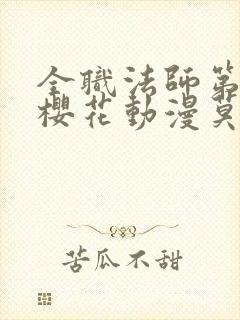 全職法師第
櫻花動漫莫
苦瓜不甜